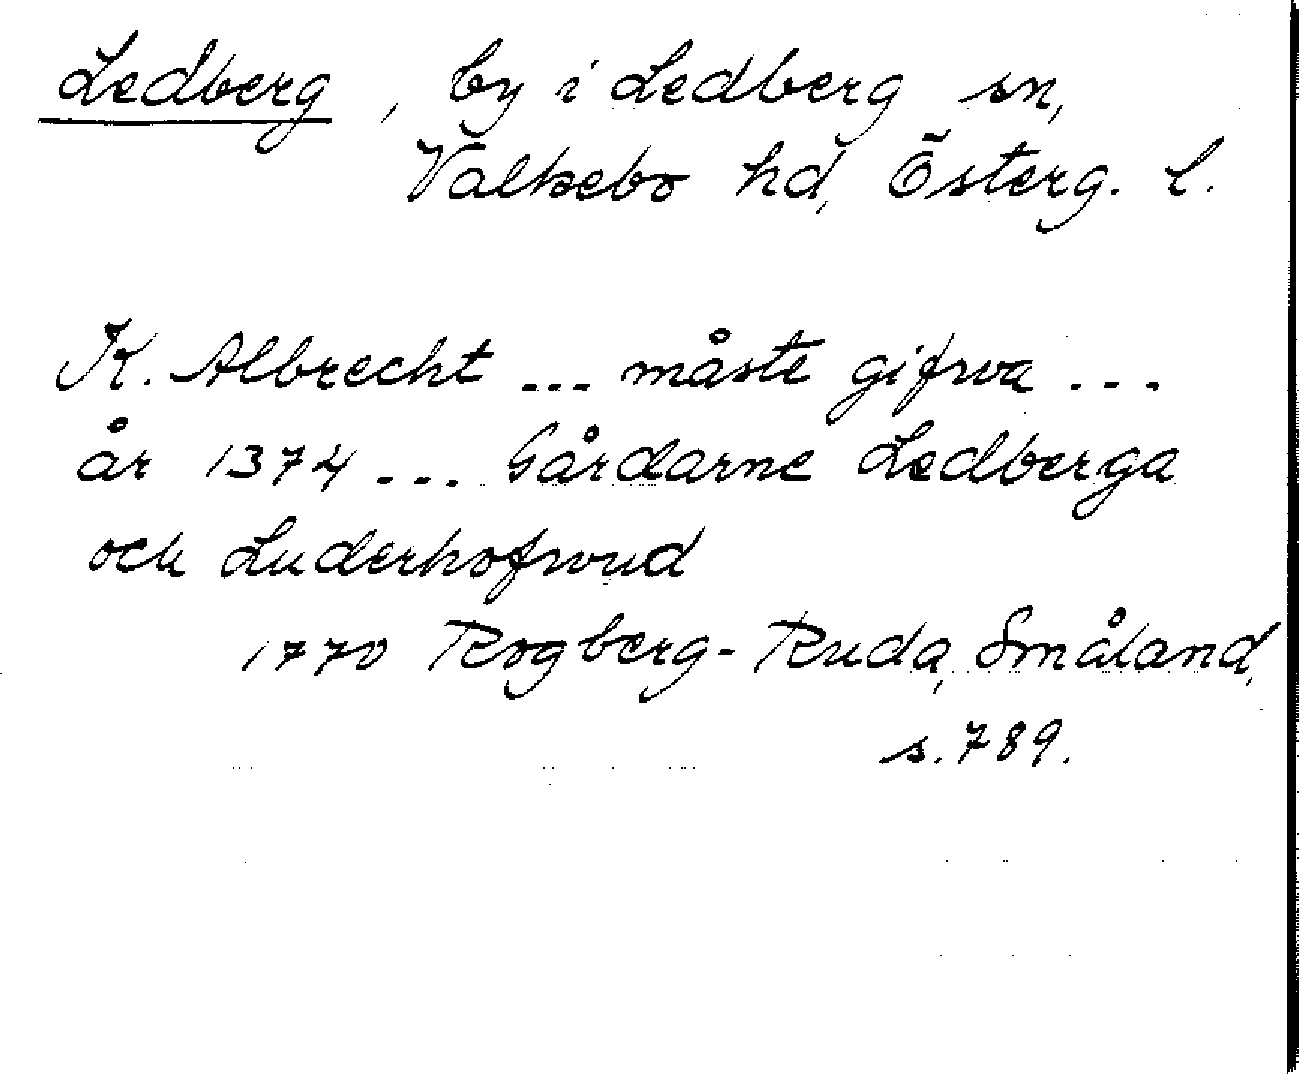 Ledberg, by i Ledberg sn,
Valkebo hd, Österg. l.
K. Albrecht ... måste gifwa ...
år 1374 ... Gårdarne Ledberga
och Luderhofwud
1770 Rogberg-Ruda, Småland,
s. 789.